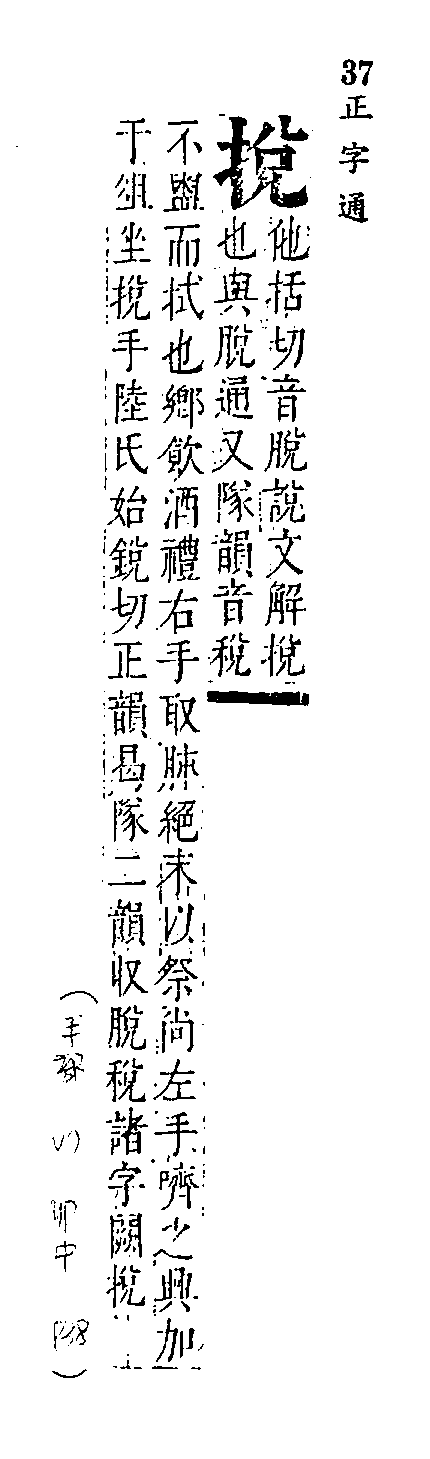 37 正字通
挩
他括切音脫說文解挩
也與脫通又隊韻音稅
不盥而拭也鄉飲酒禮右手取肺絕末以祭尚左手嚌之興加
于俎坐挩手陸氏始銳切正韻曷隊二韻收脫稅諸字闕挩